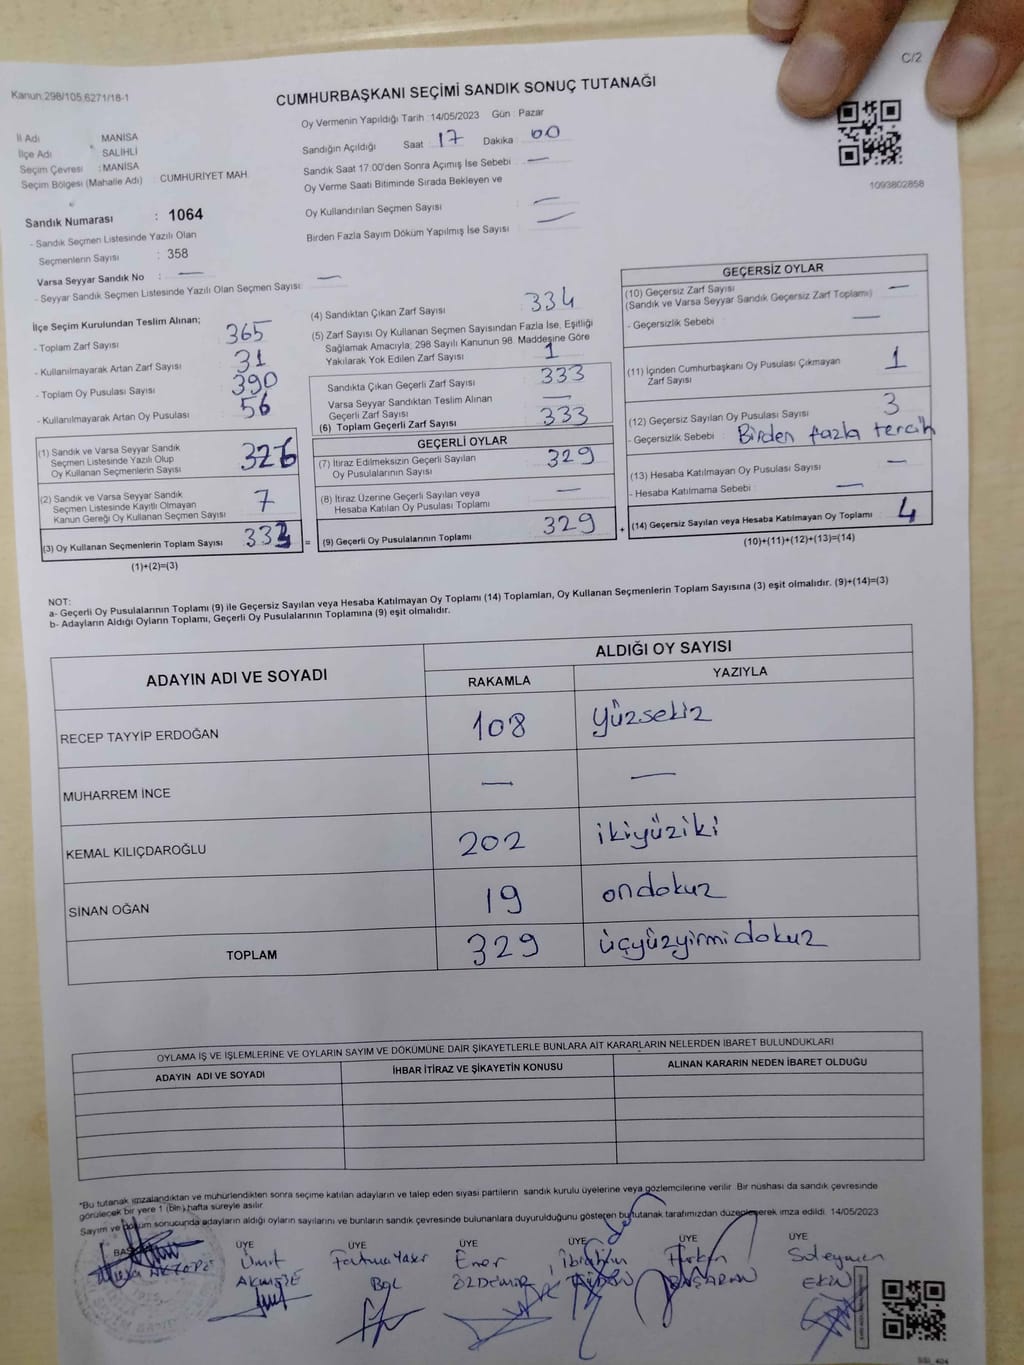 C/2
Kanun:298/105,6271/18-1
CUMHURBAŞKANI SEÇİMİ SANDIK SONUÇ TUTANAĞI
İl Adı : MANİSA
İlçe Adı : SALİHLİ
Seçim Çevresi : MANİSA
Seçim Bölgesi (Mahalle Adı) : CUMHURİYET MAH.
Oy Vermenin Yapıldığı Tarih : 14/05/2023 Gün : Pazar
Sandığın Açıldığı Saat 17 Dakika 00
Sandık Saat 17:00'den Sonra Açımış İse Sebebi —
Oy Verme Saati Bitiminde Sırada Bekleyen ve
Oy Kullandırılan Seçmen Sayısı —
Birden Fazla Sayım Döküm Yapılmış İse Sayısı —
1093802858
Sandık Numarası : 1064
- Sandık Seçmen Listesinde Yazılı Olan
Seçmenlerin Sayısı : 358
Varsa Seyyar Sandık No : —
- Seyyar Sandık Seçmen Listesinde Yazılı Olan Seçmen Sayısı: —
İlçe Seçim Kurulundan Teslim Alınan;
- Toplam Zarf Sayısı 365
- Kullanılmayarak Artan Zarf Sayısı 31
- Toplam Oy Pusulası Sayısı 390
- Kullanılmayarak Artan Oy Pusulası 56
(1) Sandık ve Varsa Seyyar Sandık
Seçmen Listesinde Yazılı Olup
Oy Kullanan Seçmenlerin Sayısı 326
(2) Sandık ve Varsa Seyyar Sandık
Seçmen Listesinde Kayıtlı Olmayan
Kanun Gereği Oy Kullanan Seçmen Sayısı 7
(3) Oy Kullanan Seçmenlerin Toplam Sayısı 333 =
(1)+(2)=(3)
(4) Sandıktan Çıkan Zarf Sayısı 334
(5) Zarf Sayısı Oy Kullanan Seçmen Sayısından Fazla İse, Eşitliği
Sağlamak Amacıyla; 298 Sayılı Kanunun 98. Maddesine Göre
Yakılarak Yok Edilen Zarf Sayısı 1
Sandıkta Çıkan Geçerli Zarf Sayısı 333
Varsa Seyyar Sandıktan Teslim Alınan
Geçerli Zarf Sayısı —
(6) Toplam Geçerli Zarf Sayısı 333
GEÇERLİ OYLAR
(7) İtiraz Edilmeksizin Geçerli Sayılan
Oy Pusulalarının Sayısı 329
(8) İtiraz Üzerine Geçerli Sayılan veya
Hesaba Katılan Oy Pusulası Toplamı —
(9) Geçerli Oy Pusulalarının Toplamı 329 +
GEÇERSİZ OYLAR
(10) Geçersiz Zarf Sayısı —
(Sandık ve Varsa Seyyar Sandık Geçersiz Zarf Toplamı)
- Geçersizlik Sebebi : —
(11) İçinden Cumhurbaşkanı Oy Pusulası Çıkmayan
Zarf Sayısı 1
(12) Geçersiz Sayılan Oy Pusulası Sayısı 3
- Geçersizlik Sebebi : Birden fazla tercih
(13) Hesaba Katılmayan Oy Pusulası Sayısı —
- Hesaba Katılmama Sebebi : —
(14) Geçersiz Sayılan veya Hesaba Katılmayan Oy Toplamı 4
(10)+(11)+(12)+(13)=(14)
NOT:
a- Geçerli Oy Pusulalarının Toplamı (9) ile Geçersiz Sayılan veya Hesaba Katılmayan Oy Toplamı (14) Toplamları, Oy Kullanan Seçmenlerin Toplam Sayısına (3) eşit olmalıdır. (9)+(14)=(3)
b- Adayların Aldığı Oyların Toplamı, Geçerli Oy Pusulalarının Toplamına (9) eşit olmalıdır.
ADAYIN ADI VE SOYADI ALDIĞI OY SAYISI
RAKAMLA YAZIYLA
RECEP TAYYİP ERDOĞAN 108 yüzsekiz
MUHARREM İNCE — —
KEMAL KILIÇDAROĞLU 202 ikiyüziki
SİNAN OĞAN 19 ondokuz
TOPLAM 329 üçyüzyirmidokuz
OYLAMA İŞ VE İŞLEMLERİNE VE OYLARIN SAYIM VE DÖKÜMÜNE DAİR ŞİKAYETLERLE BUNLARA AİT KARARLARIN NELERDEN İBARET BULUNDUKLARI
ADAYIN ADI VE SOYADI İHBAR İTİRAZ VE ŞİKAYETİN KONUSU ALINAN KARARIN NEDEN İBARET OLDUĞU
*Bu tutanak imzalandıktan ve mühürlendikten sonra seçime katılan adayların ve talep eden siyasi partilerin sandık kurulu üyelerine veya gözlemcilerine verilir. Bir nüshası da sandık çevresinde
görülecek bir yere 1 (bir) hafta süreyle asılır.
Sayım ve döküm sonucunda adayların aldığı oyların sayılarını ve bunların sandık çevresinde bulunanlara duyurulduğunu gösteren bu tutanak tarafımızdan düzenlenerek imza edildi. 14/05/2023
ÜYE ÜYE ÜYE ÜYE ÜYE ÜYE
Ümit Fatma Yaşar Ener İbrahim Furkan Süleyman
BAL ÖZDEMİR BAŞARAN EKİN